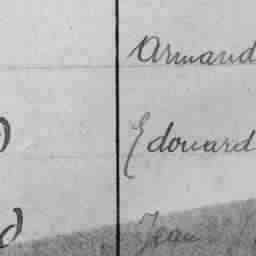 Armand
Edouard
Jean